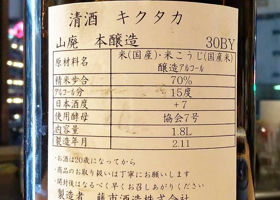 清酒 キクタカ
山廃 本醸造 30BY
原材料名 米(国産)・米こうじ(国産米) 醸造アルコール
精米歩合 70%
アルコール分 15度
日本酒度 +7
使用酵母 協会7号
内容量 1.8L
製造年月 2.11
・お酒は20歳になってから
・商品のお取り扱いは丁寧にお願いします
・開封後はなるべく早くお召しあがりください
製造者 藤市酒造株式会社